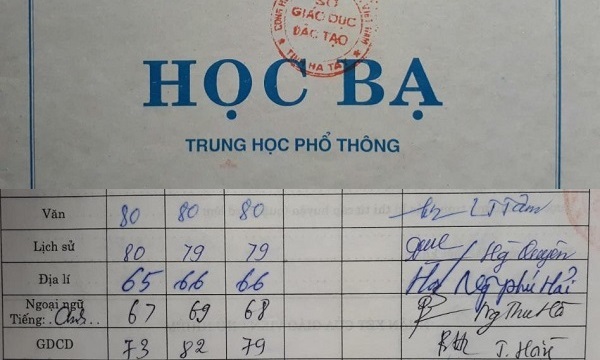 SỞ
GIÁO DỤC
ĐÀO TẠO
HỌC BẠ
TRUNG HỌC PHỔ THÔNG
Văn 80 80 80 LT Tâm
Lịch sử 80 79 79 Hg Quyên
Địa lí 65 66 66 Ng Phú Hải
Ngoại ngữ
Tiếng: Anh 67 69 68 Ng Thu Hà
GDCD 73 82 79 T. Hoài